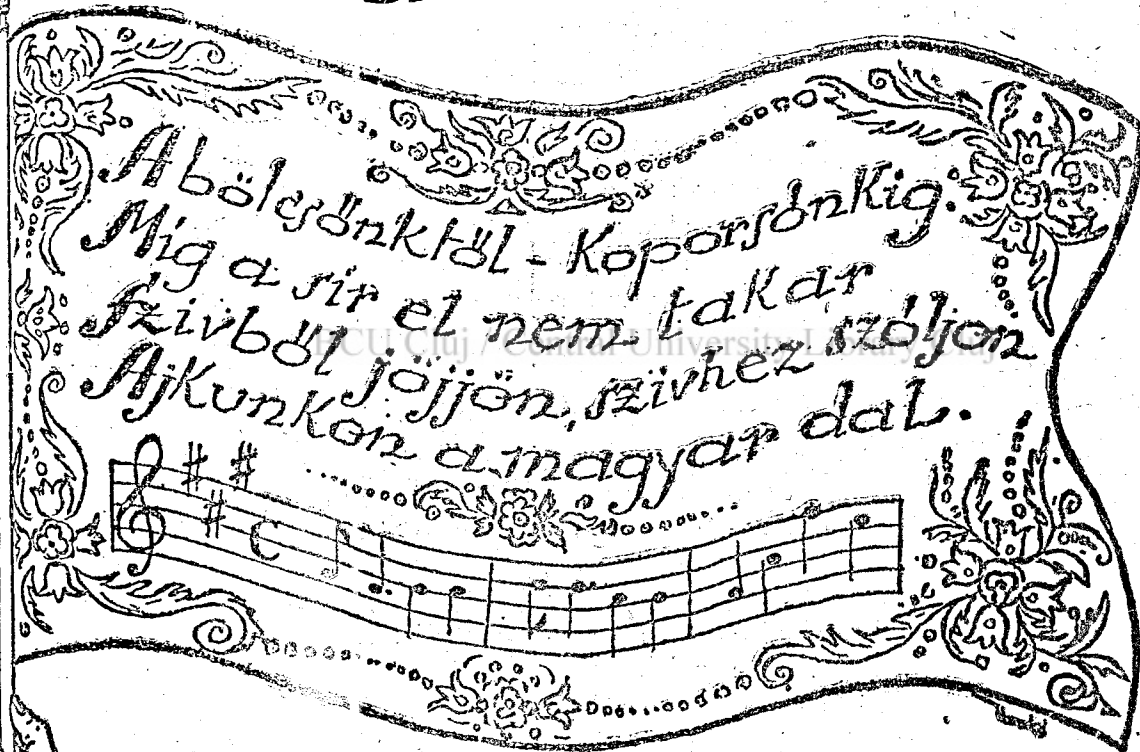 A bölcsőnktől - Koporsónkig.
Mig a sir el nem takar
Szivből jöjjön, szivhez szóljon
Ajkunkon a magyar dal.
BCU Cluj / Central University Library Cluj